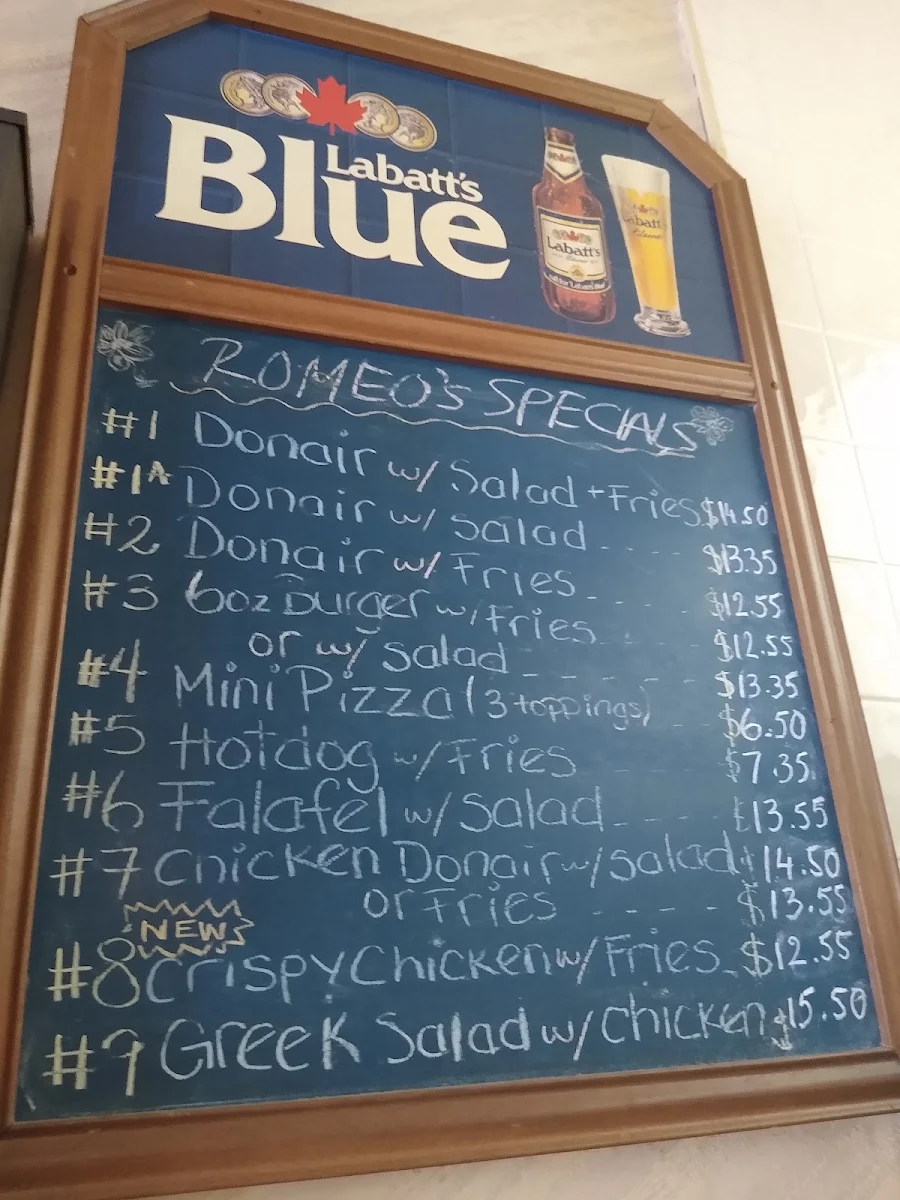 Labatt's
Blue
Labatt's
Labatt
ROMEO'S SPECIALS
#1 Donair w/ Salad + Fries $14.50
#1A Donair w/ Salad ---- $13.35
#2 Donair w/ Fries ---- $12.55
#3 6oz Burger w/ Fries ---- $12.55
or w/ Salad ------- $13.35
#4 Mini Pizza (3 toppings) -- $6.50
#5 Hotdog w/ Fries ---- $7.35
#6 Falafel w/ Salad ---- $13.55
#7 Chicken Donair w/ Salad $14.50
or Fries ---- $13.55
NEW
#8 Crispy Chicken w/ Fries - $12.55
#9 Greek Salad w/ Chicken $15.50